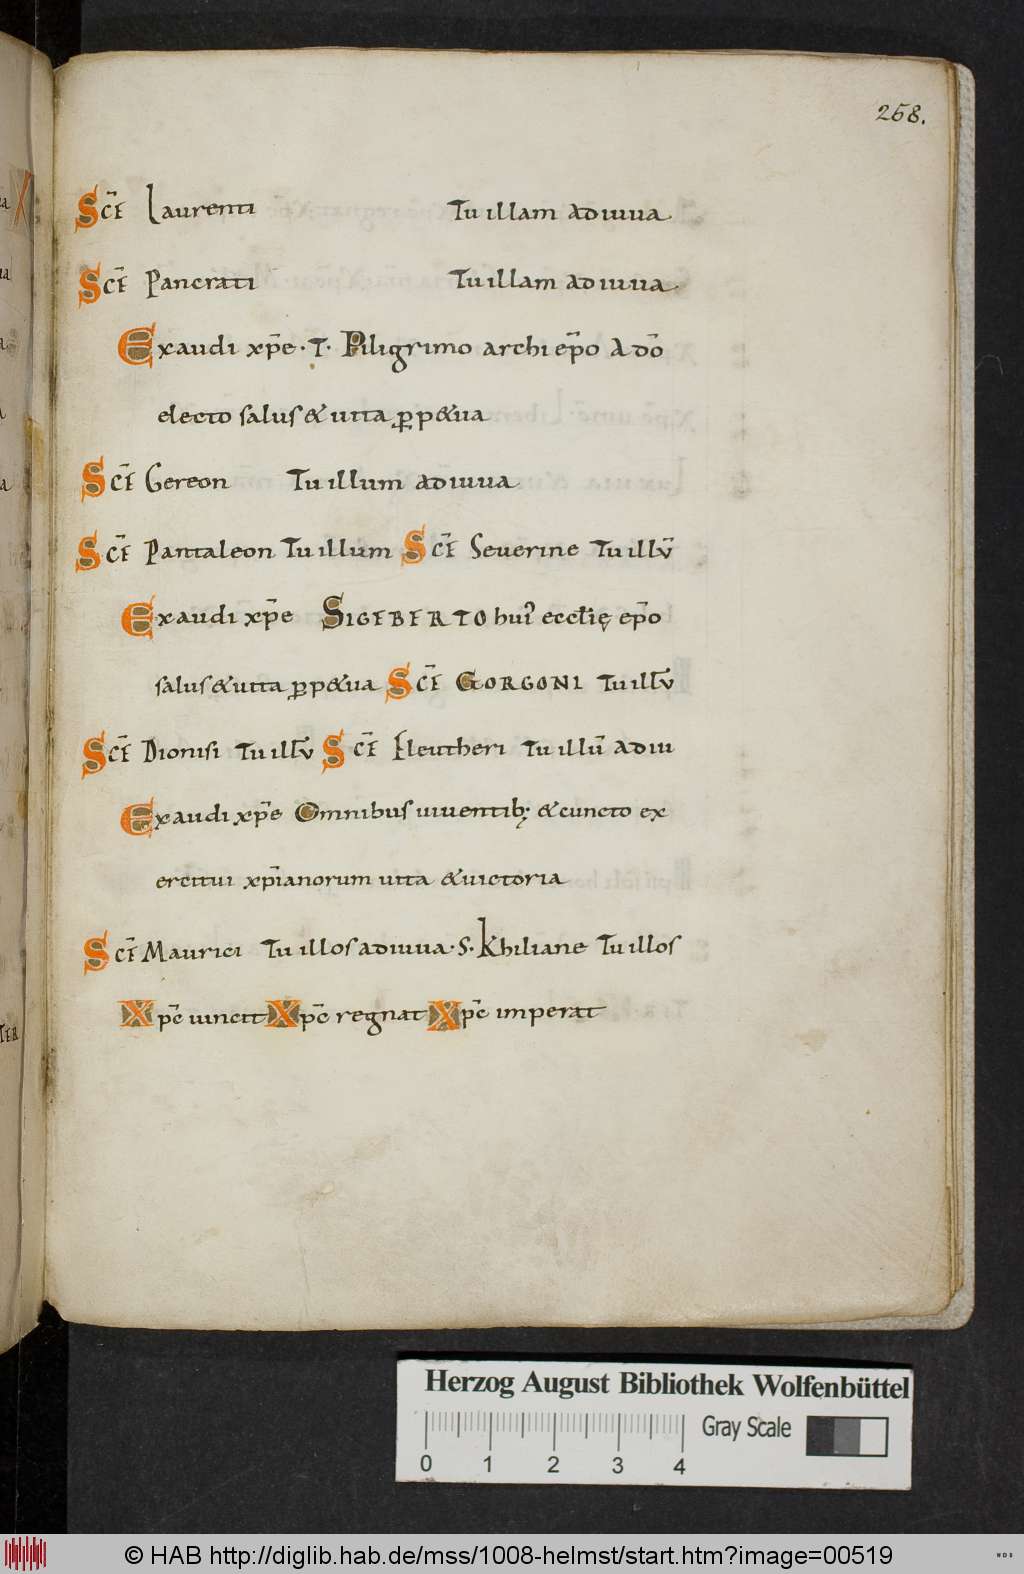 258.
Scē Laurenti Tu illam adiuua
Scē Pancrati Tu illam adiuua
Exaudi xp̄e · T · Piligrimo archi ep̄o A dō
electo salus & uita ꝑp&ua
Scē Gereon Tu illum adiuua
Scē Pantaleon Tu illum Scē Seuerine Tu illū
Exaudi xp̄e SIGEBERTO hui᾿ eccl̄ię ep̄o
salus & uita ꝑp&ua Scē GORGONI Tu illū
Scē Dionisi Tu illū Scē Eleutheri Tu illū adiu
Exaudi xp̄e Omnibus uiuentib; & cuncto ex
ercitui xp̄ianorum uita & uictoria
Scē Maurici Tu illos adiuua · S · Khiliane Tu illos
Xp̄c uincit Xp̄c regnat Xp̄c imperat
Herzog August Bibliothek Wolfenbüttel
Gray Scale
0 1 2 3 4
© HAB http://diglib.hab.de/mss/1008-helmst/start.htm?image=00519